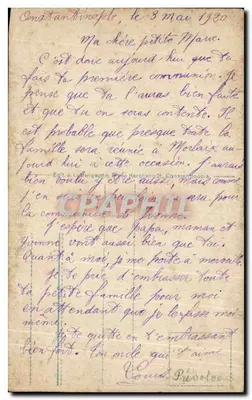 Constantinople, le 3 mai 1920
Ma chère petite Marie.
C'est donc aujourd'hui que tu
fais ta première communion. Je
pense que tu l'auras bien faite
et que tu en seras contente. Il
est probable que presque toute la
famille sera réunie à Morlaix au
jourd'hui à cette occasion. J'aurais
bien voulu y être aussi, mais comme
j'en
la
J'espère que papa, maman et
Yvonne vont aussi bien que toi.
Quant à moi, je me porte à merveille.
Je te prie d'embrasser toute
la petite famille pour moi
en attendant que je le fasse moi
même.
Je te quitte en t'embrassant
bien fort. Ton oncle qui t'aime
Louis
CPAPHIL